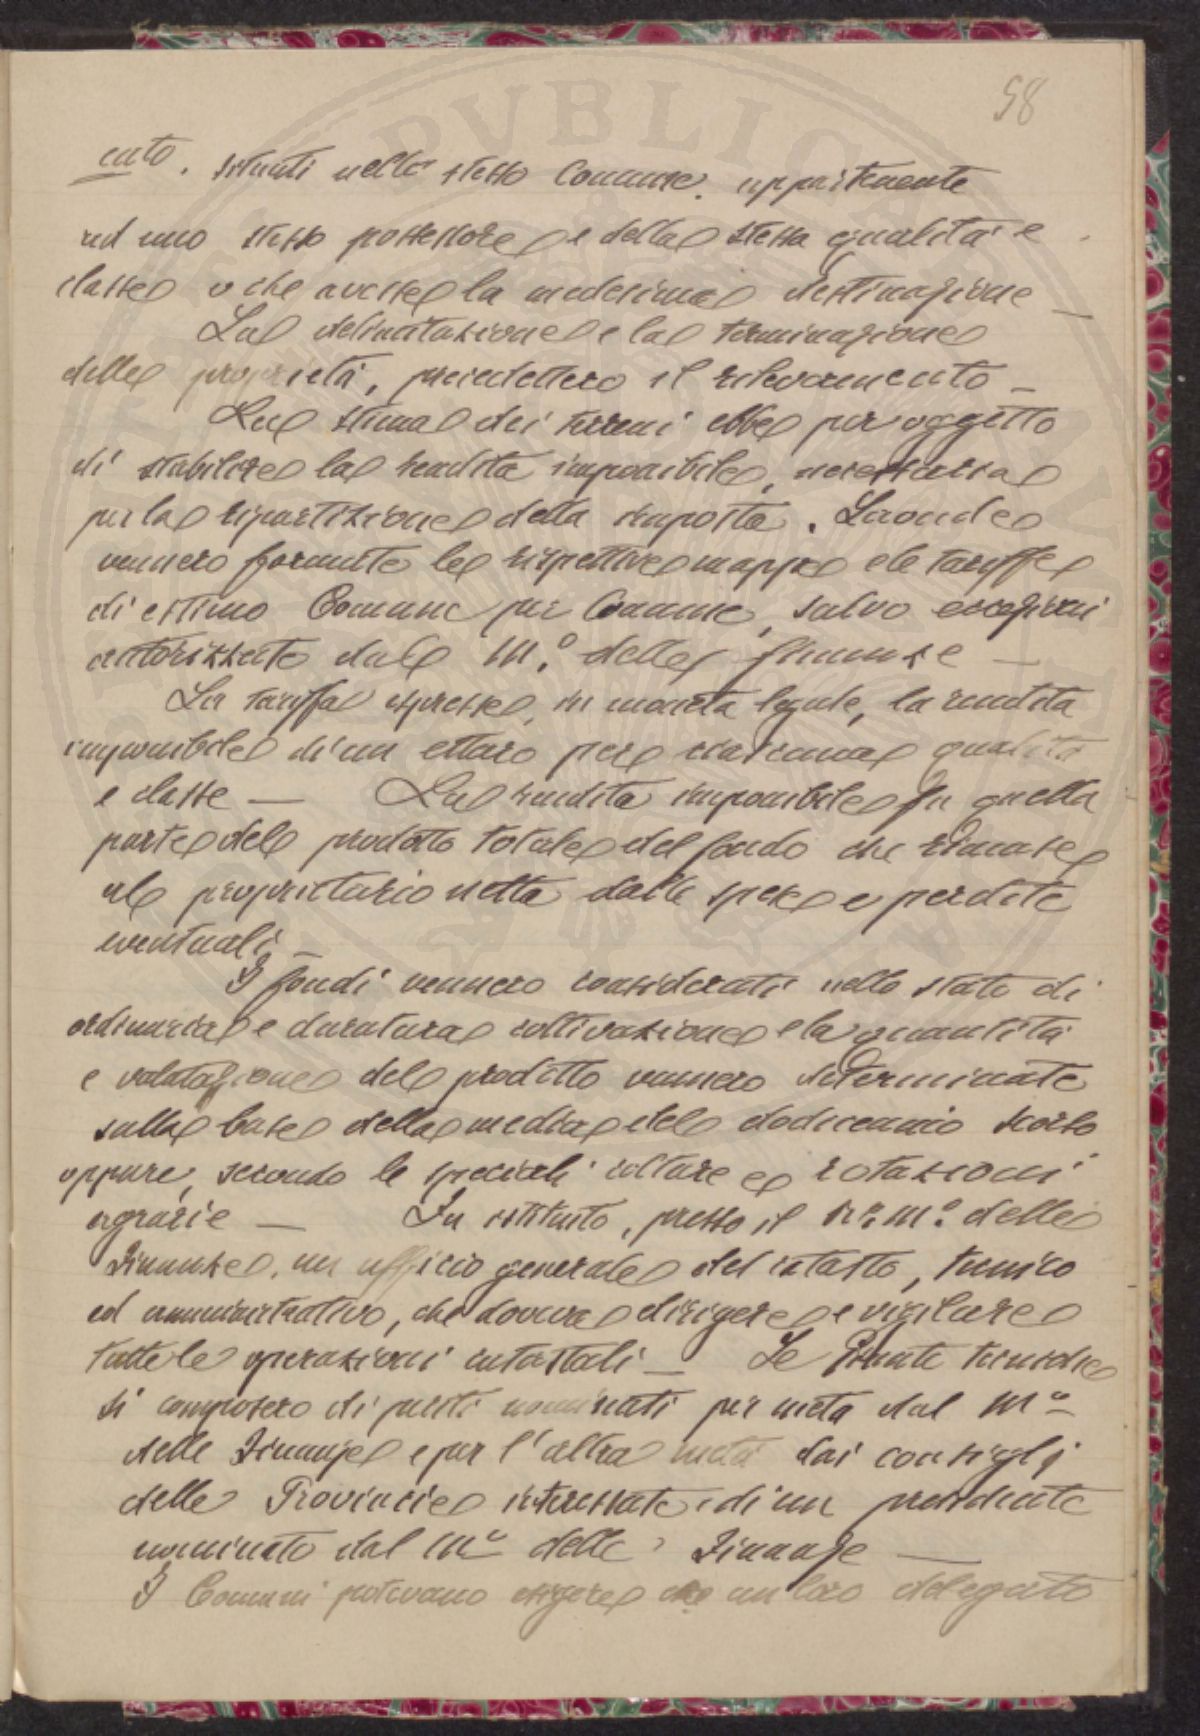 58
cuto. situati nello stesso Comune. appartenente
ad uno stesso possessore e della stessa qualità e
classe o che avesse la medesima destinazione _
La delimitazione e la terminazione
delle proprietà, precedettero il rilevamento _
La stima dei terreni ebbe per oggetto
di stabilire la rendita imponibile, necessaria
per la ripartizione della imposta. Laonde
vennero formate le rispettive mappe e le tariffe
di estimo Comune per Comune, salvo eccezioni
autorizzate dal M.º delle finanze _
La tariffa espresse, in moneta legale, la rendita
imponibile di un ettaro per ciascuna qualità
e classe _ La rendita imponibile fu quella
parte del prodotto totale del fondo che rimase
al proprietario netta dalle spese e perdite
eventuali _
I fondi vennero considerati nello stato di
ordinaria e duratura coltivazione e la quantità
e valutazione del prodotto vennero determinate
sulla base della media del dodicennio scorso
oppure, secondo le speciali colture e rotazioni
agrarie _ Fu istituito, presso il M.º delle
Finanze, un ufficio generale del catasto, tecnico
ed amministrativo, che doveva dirigere e vigilare
tutte le operazioni catastali _ Le Giunte tecniche
si composero di periti nominati per metà dal Mº
delle Finanze e per l'altra metà dai consigli
delle Provincie interessate e di un presidente
nominato dal Mº delle Finanze _
I Comuni potevano esigere che un loro delegato